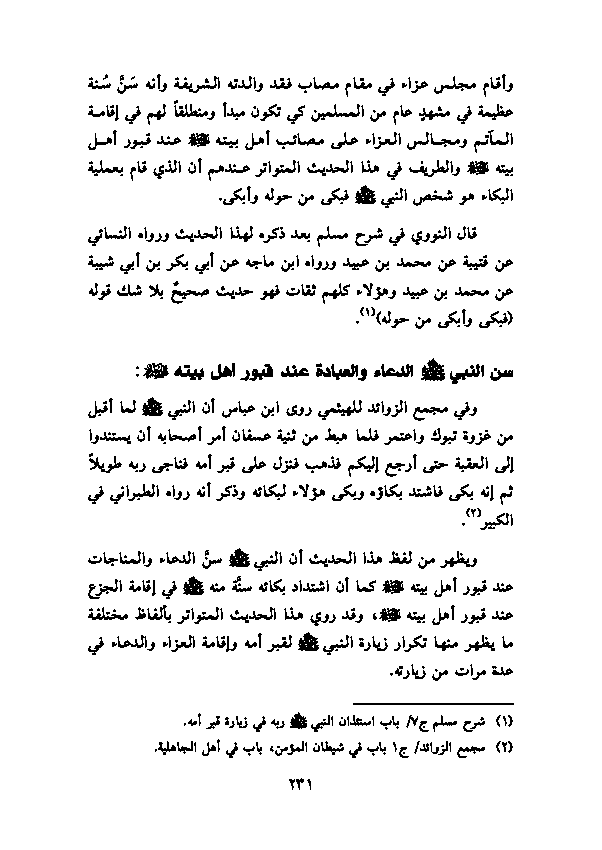 وأقام مجلس عزاء في مقام مصاب فقد والدته الشريفة وأنه سَنَّ سُنة
عظيمة في مشهدٍ عام من المسلمين كي تكون مبدأ ومنطلقاً لهم في إقامة
المآتم ومجالس العزاء على مصائب أهل بيته عند قبور أهل
بيته والطريف في هذا الحديث المتواتر عندهم أن الذي قام بعملية
البكاء هو شخص النبي ﷺ فبكى من حوله وأبكى.
قال النووي في شرح مسلم بعد ذكره لهذا الحديث ورواه النسائي
عن قتيبة عن محمد بن عبيد ورواه ابن ماجه عن أبي بكر بن أبي شيبة
عن محمد بن عبيد وهؤلاء كلهم ثقات فهو حديث صحيحٌ بلا شك قوله
(فبكى وأبكى من حوله)(١).
سن النبي ﷺ الدعاء والعبادة عند قبور أهل بيته :
وفي مجمع الزوائد للهيثمي روى ابن عباس أن النبي ﷺ لما أقبل
من غزوة تبوك واعتمر فلما هبط من ثنية عسفان أمر أصحابه أن يستندوا
إلى العقبة حتى أرجع إليكم فذهب فنزل على قبر أمه فناجى ربه طويلاً
ثم إنه بكى فاشتد بكاؤه وبكى هؤلاء لبكائه وذكر أنه رواه الطبراني في
الكبير(٢).
ويظهر من لفظ هذا الحديث أن النبي ﷺ سنَّ الدعاء والمناجات
عند قبور أهل بيته كما أن اشتداد بكائه سنَّة منه ﷺ في إقامة الجزع
عند قبور أهل بيته ، وقد روي هذا الحديث المتواتر بألفاظ مختلفة
ما يظهر منها تكرار زيارة النبي ﷺ لقبر أمه وإقامة العزاء والدعاء في
عدة مرات من زيارته.
(١) شرح مسلم ج٧/ باب استئذان النبي ﷺ ربه في زيارة قبر أمه.
(٢) مجمع الزوائد/ ج١ باب في شيطان المؤمن، باب في أهل الجاهلية.
٢٣١